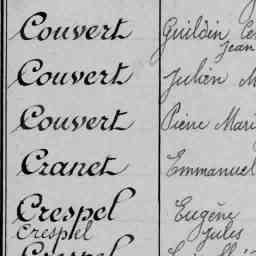 Couvert Guildin
Jean
Couvert Julien M
Couvert Pierre Mari
Cranet Emmanuel
Crespel Eugène
Crespel Jules
Crespel